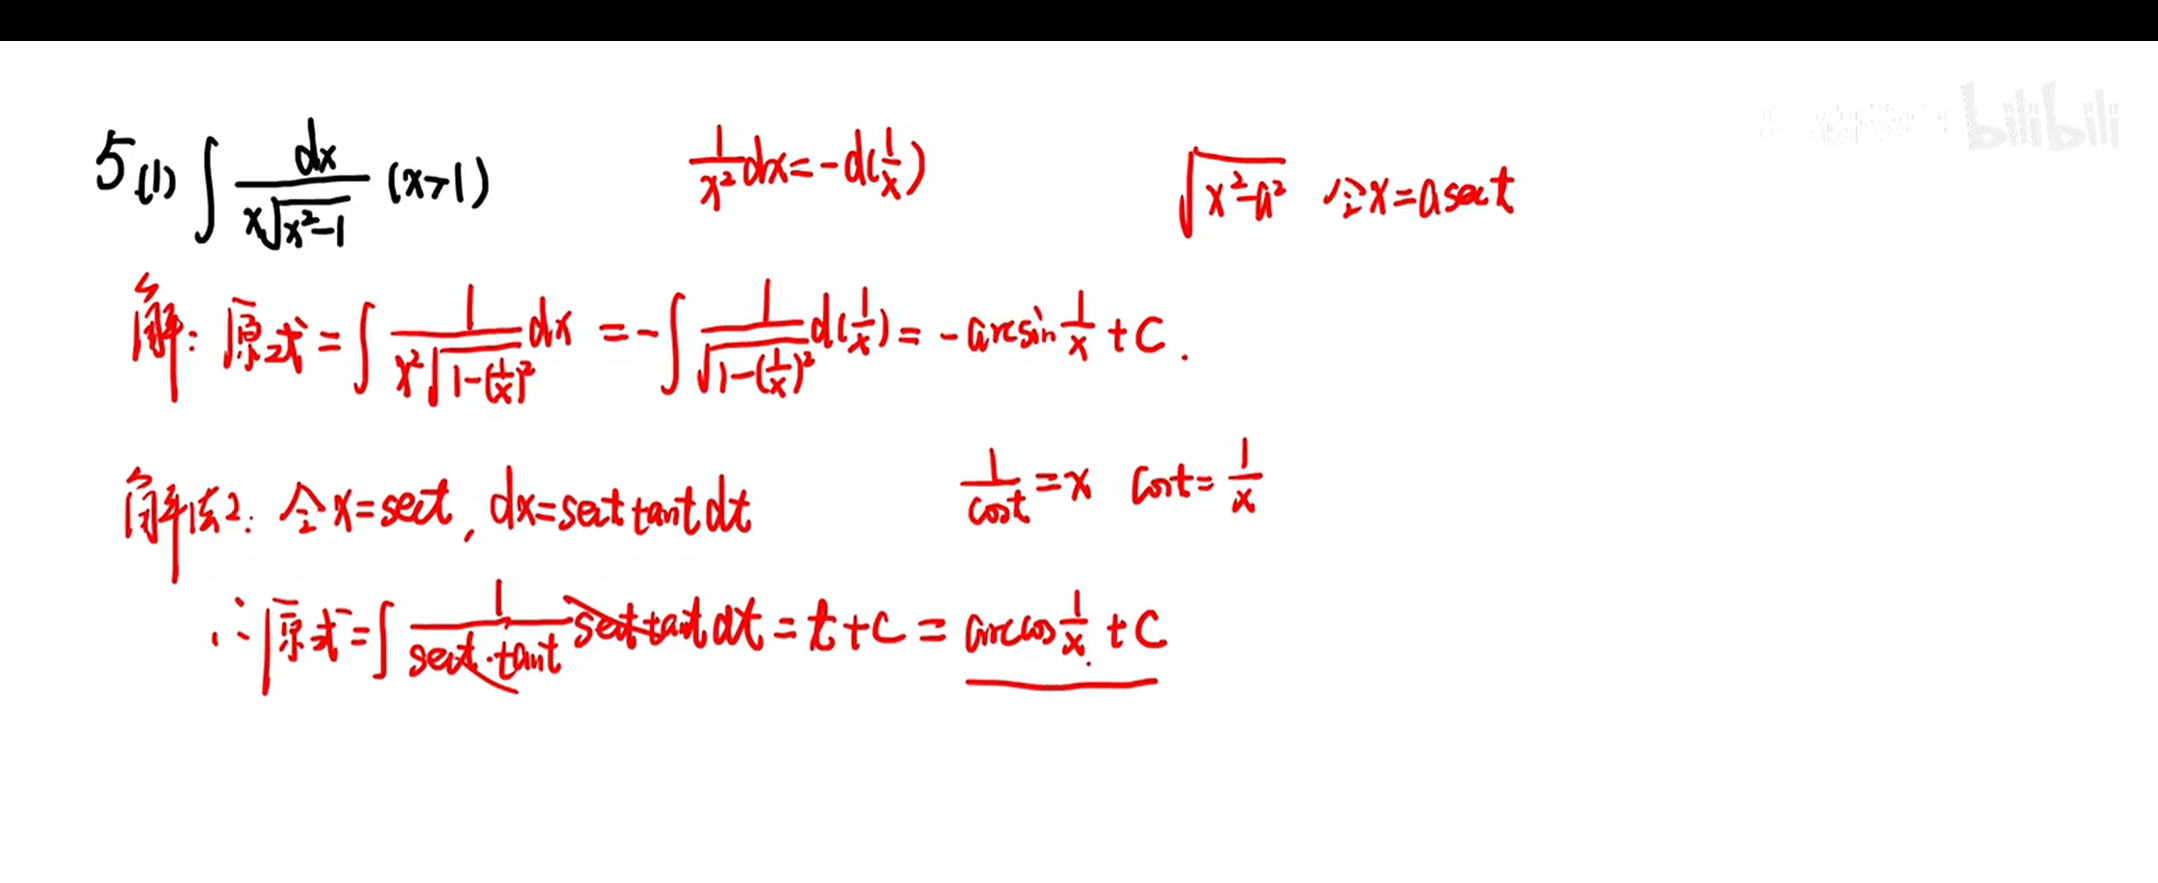 5(1) ∫ dx / (x√(x²-1)) (x>1)
1/x² dx = -d(1/x)
√(x²-a²) 令x=asect
bilibili
解: 原式 = ∫ 1/(x²√(1-(1/x)²)) dx = -∫ 1/√(1-(1/x)²) d(1/x) = -arcsin 1/x + C.
解法2: 令x=sect, dx=sect tant dt
1/cost = x cost = 1/x
∴原式 = ∫ 1/(sect·tant) sect tant dt = t + C = arccos 1/x + C